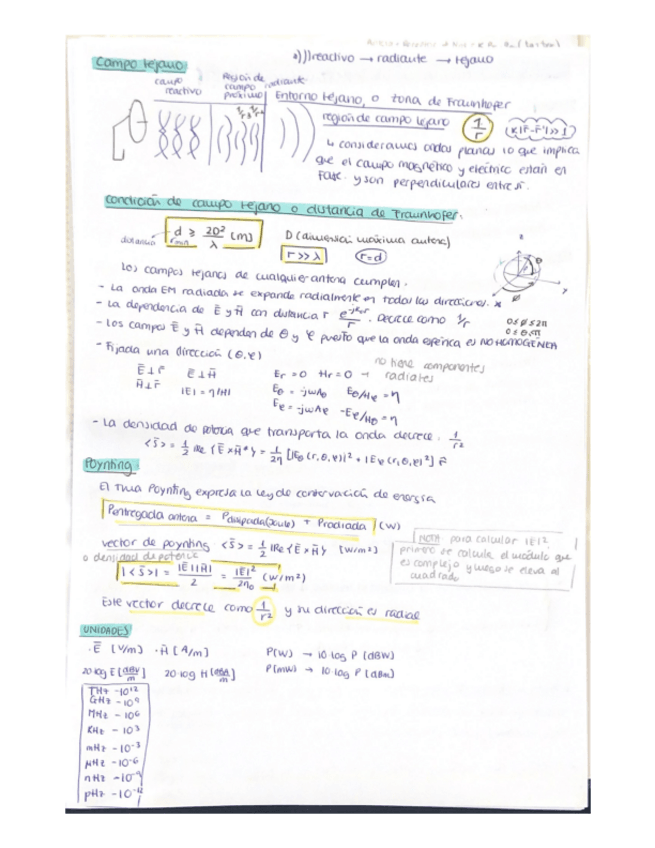 Campo lejano
a)))reactivo → radiante → lejano
campo reactivo
Región de campo radiante próximo
Entorno lejano, o zona de Fraunhofer
región de campo lejano 1/r (K|r̄-r̄'|>>1)
↳ consideramos ondas planas lo que implica
que el campo magnético y eléctrico están en
fase y son perpendiculares entre sí.
Condición de campo lejano o distancia de Fraunhofer:
distancia d ≥ 2D²/λ [m] D (dimensión máxima antena)
rmin r >> λ r=d
Los campos lejanos de cualquier antena cumplen.
- La onda EM radiada se expande radialmente en todas las direcciones.
- La dependencia de Ē y H̄ con distancia r e^-jk₀r/r. Decrece como 1/r
- Los campos Ē y H̄ dependen de θ y φ puesto que la onda esférica es NO HOMOGÉNEA
z
θ
y
x
φ
0≤φ≤2π
0≤θ≤π
- Fijada una dirección (θ,φ)
no tiene componentes radiales
Ē⊥r̄ Ē⊥H̄ Er=0 Hr=0 →
H̄⊥r̄ |E|=η|H| Eθ = -jwAθ Eθ/Hφ = η
Eφ = -jwAφ -Eφ/Hθ = η
- La densidad de potencia que transporta la onda decrece. 1/r²
<S̄> = 1/2 Re {Ē×H̄*} = 1/2η [|Eθ (r,θ,φ)|² + |Eφ (r,θ,φ)|²] r̂
Poynting:
El Tma Poynting expresa la ley de conservación de energía
Pentregada antena = Pdisipada(Joule) + Pradiada (W)
vector de poynting <S̄> = 1/2 Re{Ē×H̄} [W/m²]
o densidad de potencia
|<S̄>| = |Ē||H̄|/2 = |E|²/2η₀ (W/m²)
NOTA para calcular |E|²
primero se calcula el módulo que
es complejo y luego se eleva al
cuadrado
Este vector decrece como 1/r² y su dirección es radial
UNIDADES
·Ē [V/m] ·H̄ [A/m] P(W) → 10·log P [dBW]
20·log E [dBV/m] 20·log H [dBA/m] P(mW) → 10·log P [dBm]
THz -10¹²
GHz -10⁹
MHz - 10⁶
KHz - 10³
mHz -10⁻³
μHz -10⁻⁶
nHz -10⁻⁹
pHz -10⁻¹²